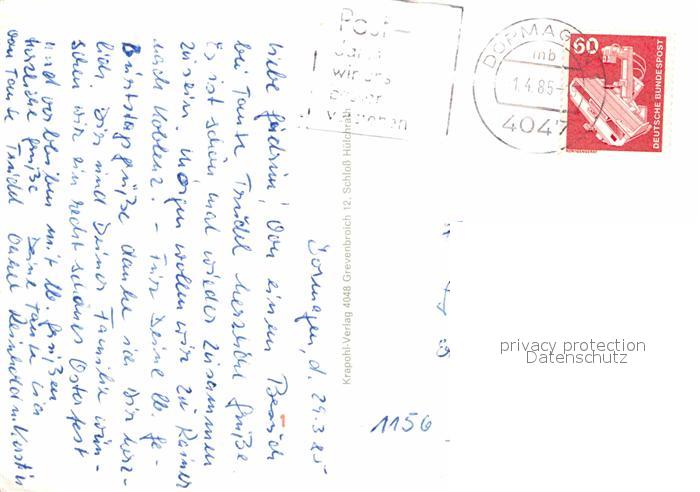 Dormagen, d. 29.3.85
Liebe Gudrun! Von einem Besuch
bei Tante Trudel herzliche Grüße.
Es ist schön mal wieder zusammen
zu sein. Morgen wollen wir zu Rainer
nach Koblenz. - Für Deine lb. Ge-
burtstagsgrüße danke ich Dir herz-
lich. Dir und Deiner Familie wün-
schen wir ein recht schönes Osterfest
und verbleiben mit lb. Grüßen
herzliche Grüße Deine Tante
von Tante Trudel Onkel Reinhold u. Kerstin
Krapohl-Verlag 4048 Grevenbroich 12, Schloß Hülchrath
Post-
wir uns
DORMAG
mb
1.4.85
4047
60
DEUTSCHE BUNDESPOST
1156
privacy protection
Datenschutz